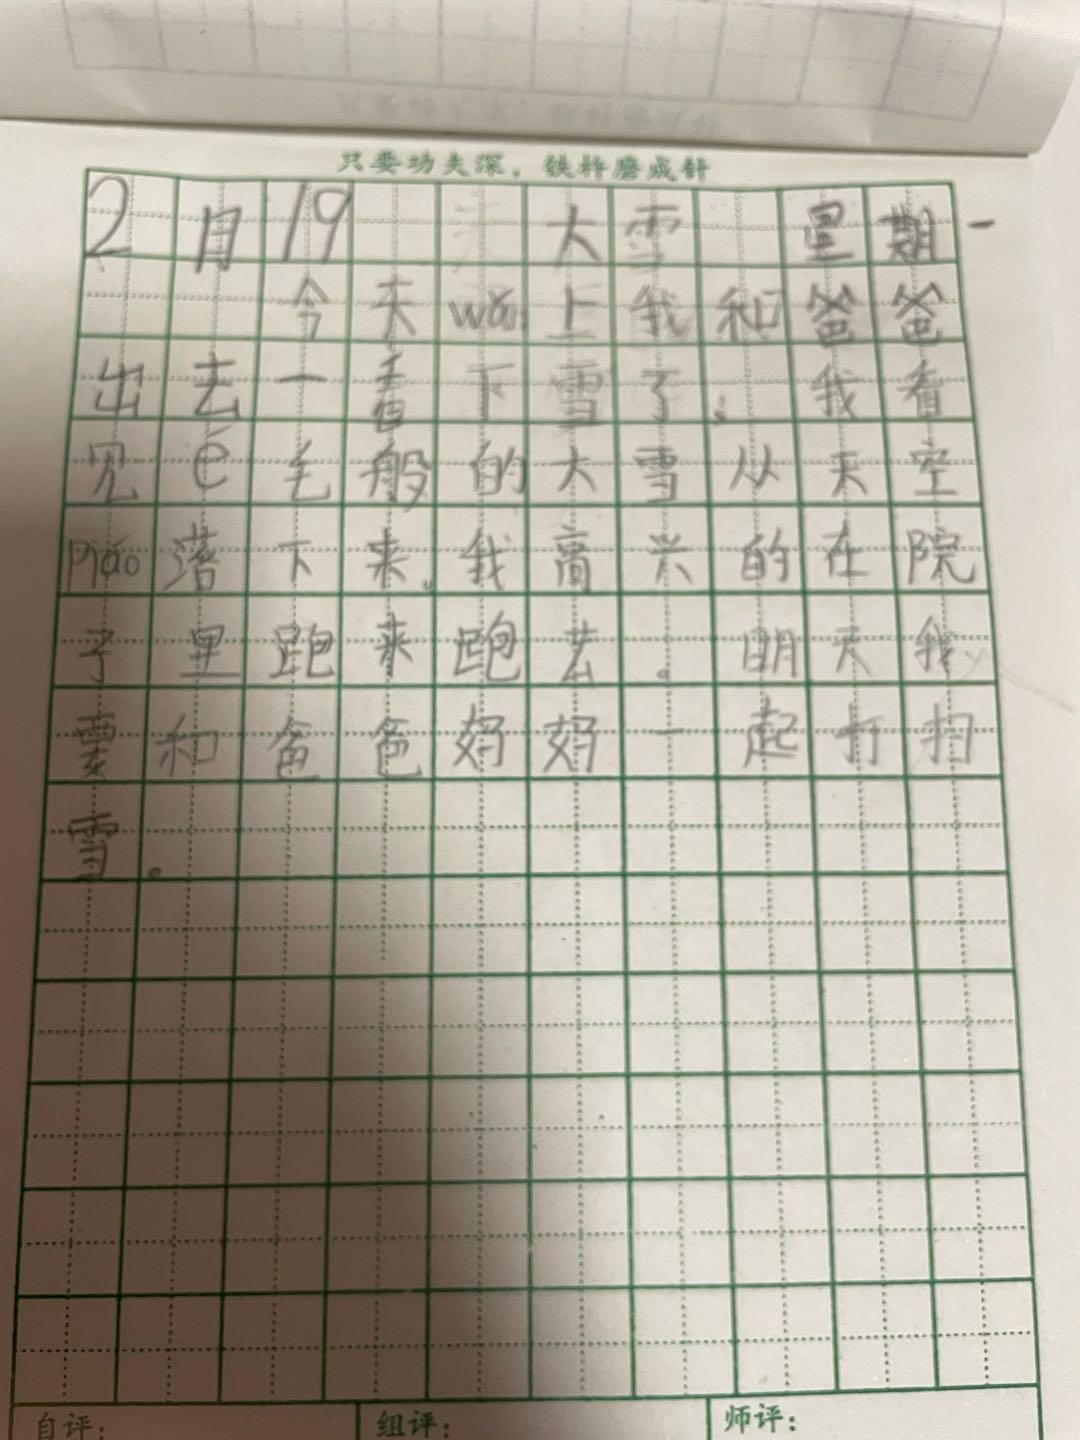 只要功夫深，铁杵磨成针
2月19 大雪 星期一
今天wǎn上我和爸爸
出去一看下雪了。我看
见é毛般的大雪从天空
piāo落下来。我高兴的在院
子里跑来跑去。明天我
要和爸爸妈妈一起打扫
雪。
自评： 组评： 师评：